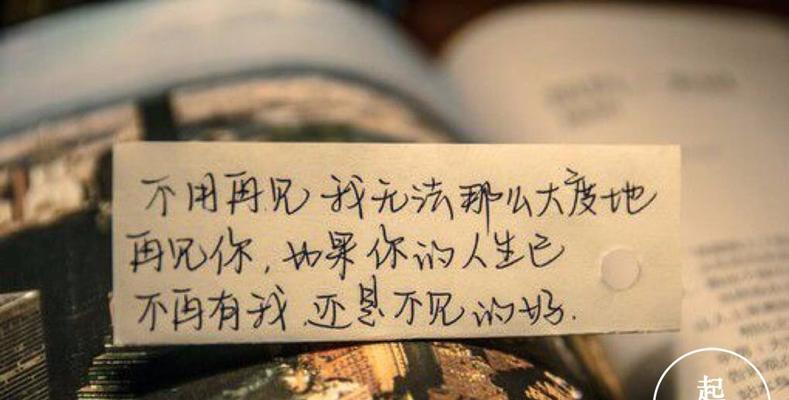 不用再见 我无法那么大度地
再见你，如果你的人生已
不再有我 还是不见的好.
起